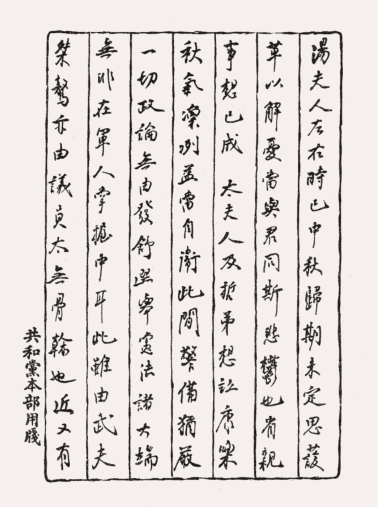 湯夫人左右時已中秋歸期未定思蘐
草以解憂當與君同斯悲鬱也省親
事想已成 太夫人及哲弟想康樂
秋氣凜冽益當自衛此間警備猶嚴
一切政論無由發舒選舉憲法諸大端
無非在軍人掌握中耳此雖由武夫
桀驁亦由議員太無骨榦也近又有
共和黨本部用牋